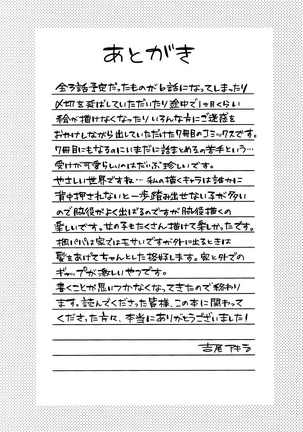 あとがき
全3話予定だったものが6話になってしまったり
〆切を延ばしていただいたり途中で1ヶ月くらい
絵が描けなくなったりいろんな方にご迷惑を
おかけしながら出していただけた7冊目のコミックスです。
7冊目にもなるのにいまだに話まとめるの苦手という…
受けが可愛らしいのはだいぶ珍しいです。
やさしい世界ですね… 私の描くキャラは誰かに
背中押されないと一歩踏み出せない子が多い
ので脇役がよく出ばるのですが脇役描くの
楽しいです。女の子もたくさん描けて楽しかったです。
パパは家ではモサいですが外に出るときは
髪をあげてちゃんとした格好します。家と外での
ギャップが激しいやつです。
書くことが思いつかなくなってきたので終わり
ます。読んでくださった皆様、この本に関わって
くださった方々、本当にありがとうございました!
吉尾アキラ